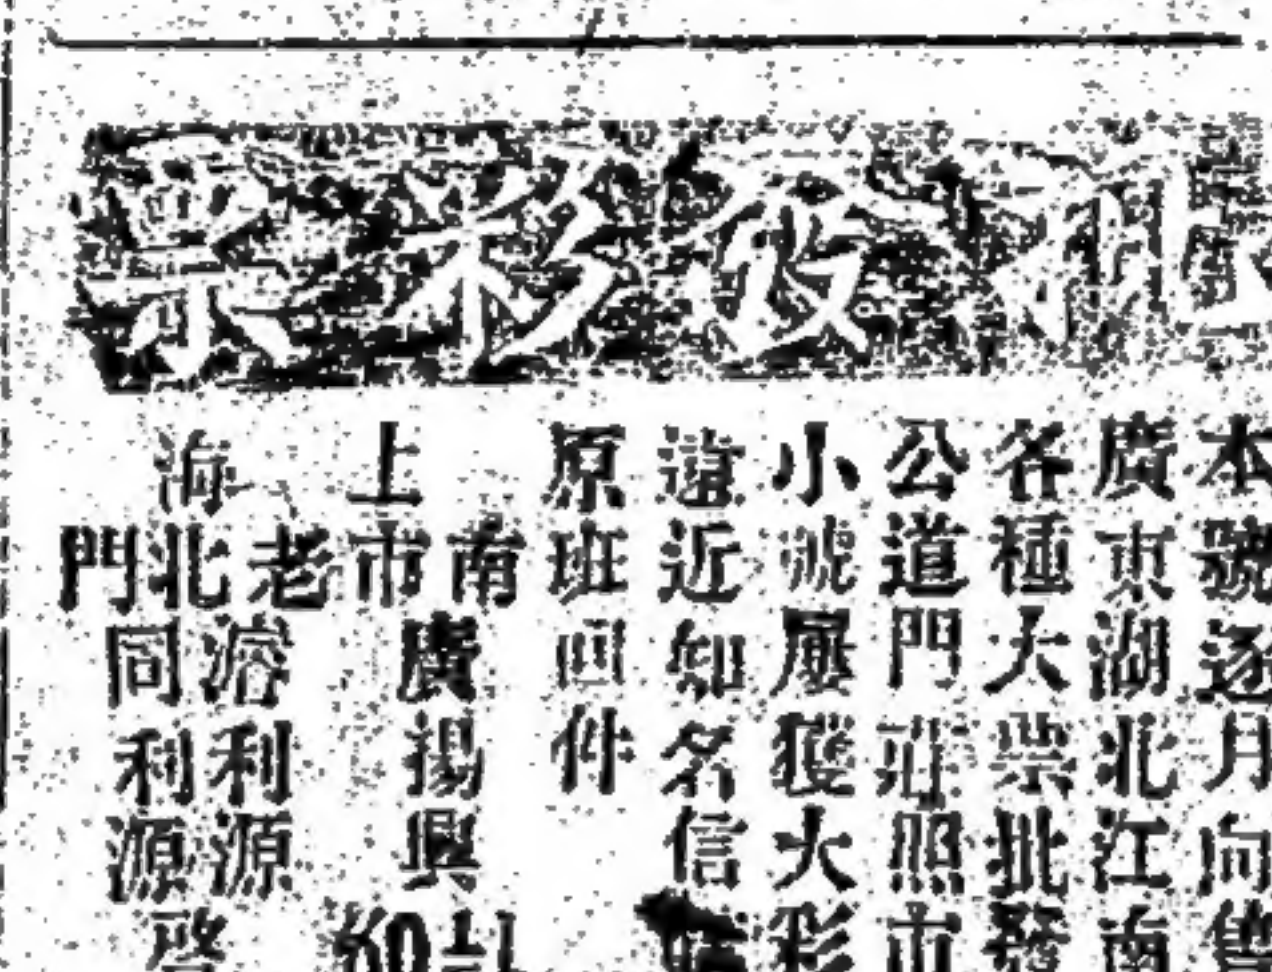 批發彩票
本號逐月向售
廣東湖北江南
各種大票批發
公道門莊照市
小號屢獲大彩
遠近知名信
原班回件
上
南市廣揚興
海
老北門
溶利源
同利源
啓